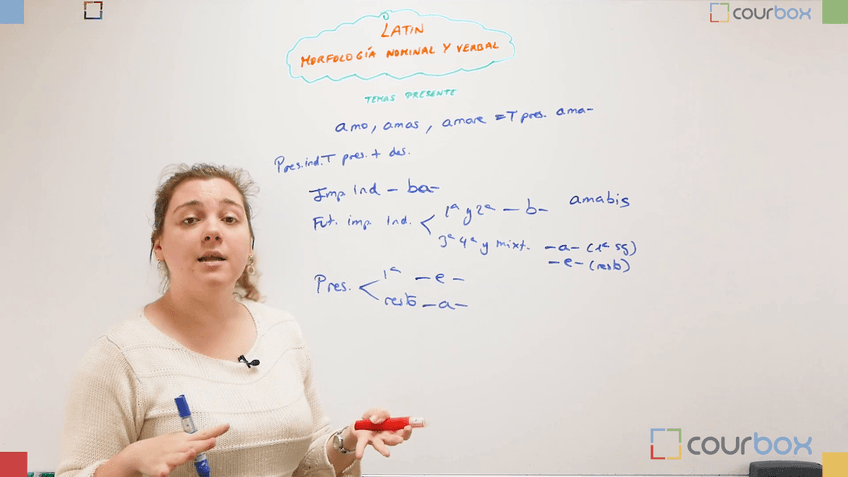 courbox
LATIN
MORFOLOGÍA NOMINAL Y VERBAL
TEMAS PRESENTE
amo, amas, amare = T pres. ama-
Pres. ind. T pres. + des.
Imp Ind - ba-
Fut. imp. Ind. < 1ª y 2ª - b- amabis
3ª 4ª y mixt. -a- (1ª sg)
-e- (resto)
Pres. < 1ª -e-
resto -a-
courbox